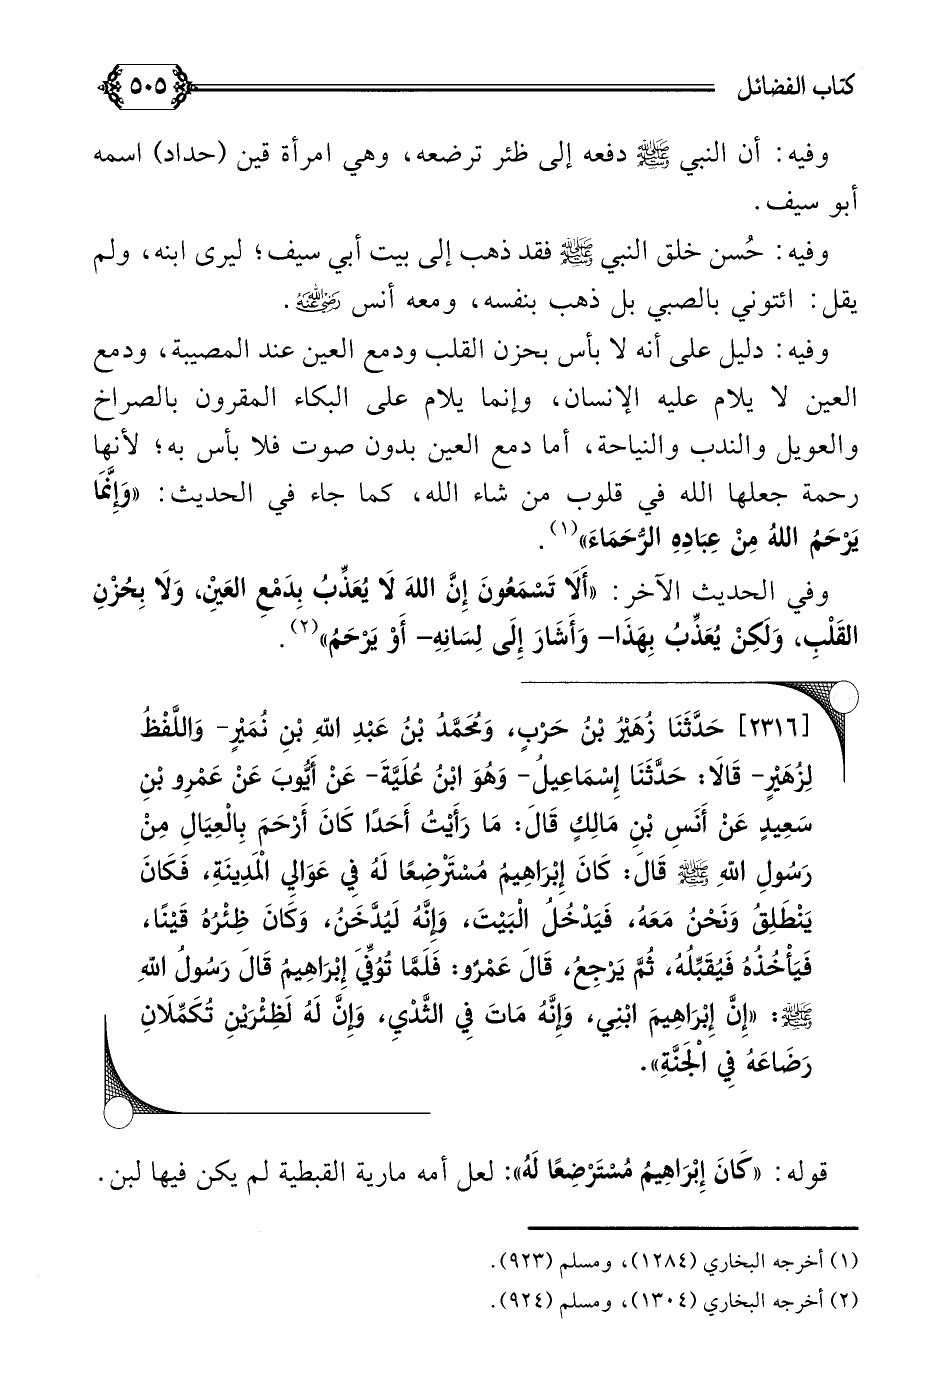 كتاب الفضائل ٥٠٥
وفيه: أن النبي ﷺ دفعه إلى ظئر ترضعه، وهي امرأة قين (حداد) اسمه
أبو سيف.
وفيه: حُسن خلق النبي ﷺ فقد ذهب إلى بيت أبي سيف؛ ليرى ابنه، ولم
يقل: ائتوني بالصبي بل ذهب بنفسه، ومعه أنس رضي الله عنه.
وفيه: دليل على أنه لا بأس بحزن القلب ودمع العين عند المصيبة، ودمع
العين لا يلام عليه الإنسان، وإنما يلام على البكاء المقرون بالصراخ
والعويل والندب والنياحة، أما دمع العين بدون صوت فلا بأس به؛ لأنها
رحمة جعلها الله في قلوب من شاء الله، كما جاء في الحديث: «وَإِنَّمَا
يَرْحَمُ اللهُ مِنْ عِبَادِهِ الرُّحَمَاءَ»(١).
وفي الحديث الآخر: «أَلَا تَسْمَعُونَ إِنَّ اللهَ لَا يُعَذِّبُ بِدَمْعِ العَيْنِ، وَلَا بِحُزْنِ
القَلْبِ، وَلَكِنْ يُعَذِّبُ بِهَذَا- وَأَشَارَ إِلَى لِسَانِهِ- أَوْ يَرْحَمُ»(٢).
[٢٣١٦] حَدَّثَنَا زُهَيْرُ بْنُ حَرْبٍ، وَمُحَمَّدُ بْنُ عَبْدِ اللهِ بْنِ نُمَيْرٍ- وَاللَّفْظُ
لِزُهَيْرٍ- قَالَا: حَدَّثَنَا إِسْمَاعِيلُ- وَهُوَ ابْنُ عُلَيَّةَ- عَنْ أَيُّوبَ عَنْ عَمْرِو بْنِ
سَعِيدٍ عَنْ أَنَسِ بْنِ مَالِكٍ قَالَ: مَا رَأَيْتُ أَحَدًا كَانَ أَرْحَمَ بِالْعِيَالِ مِنْ
رَسُولِ اللهِ ﷺ قَالَ: كَانَ إِبْرَاهِيمُ مُسْتَرْضِعًا لَهُ فِي عَوَالِي الْمَدِينَةِ، فَكَانَ
يَنْطَلِقُ وَنَحْنُ مَعَهُ، فَيَدْخُلُ الْبَيْتَ، وَإِنَّهُ لَيُدَّخَنُ، وَكَانَ ظِئْرُهُ قَيْنًا،
فَيَأْخُذُهُ فَيُقَبِّلُهُ، ثُمَّ يَرْجِعُ، قَالَ عَمْرٌو: فَلَمَّا تُوُفِّيَ إِبْرَاهِيمُ قَالَ رَسُولُ اللهِ
ﷺ: «إِنَّ إِبْرَاهِيمَ ابْنِي، وَإِنَّهُ مَاتَ فِي الثَّدْيِ، وَإِنَّ لَهُ لَظِئْرَيْنِ تُكَمِّلَانِ
رَضَاعَهُ فِي الْجَنَّةِ».
قوله: «كَانَ إِبْرَاهِيمُ مُسْتَرْضِعًا لَهُ»: لعل أمه مارية القبطية لم يكن فيها لبن.
(١) أخرجه البخاري (١٢٨٤)، ومسلم (٩٢٣).
(٢) أخرجه البخاري (١٣٠٤)، ومسلم (٩٢٤).